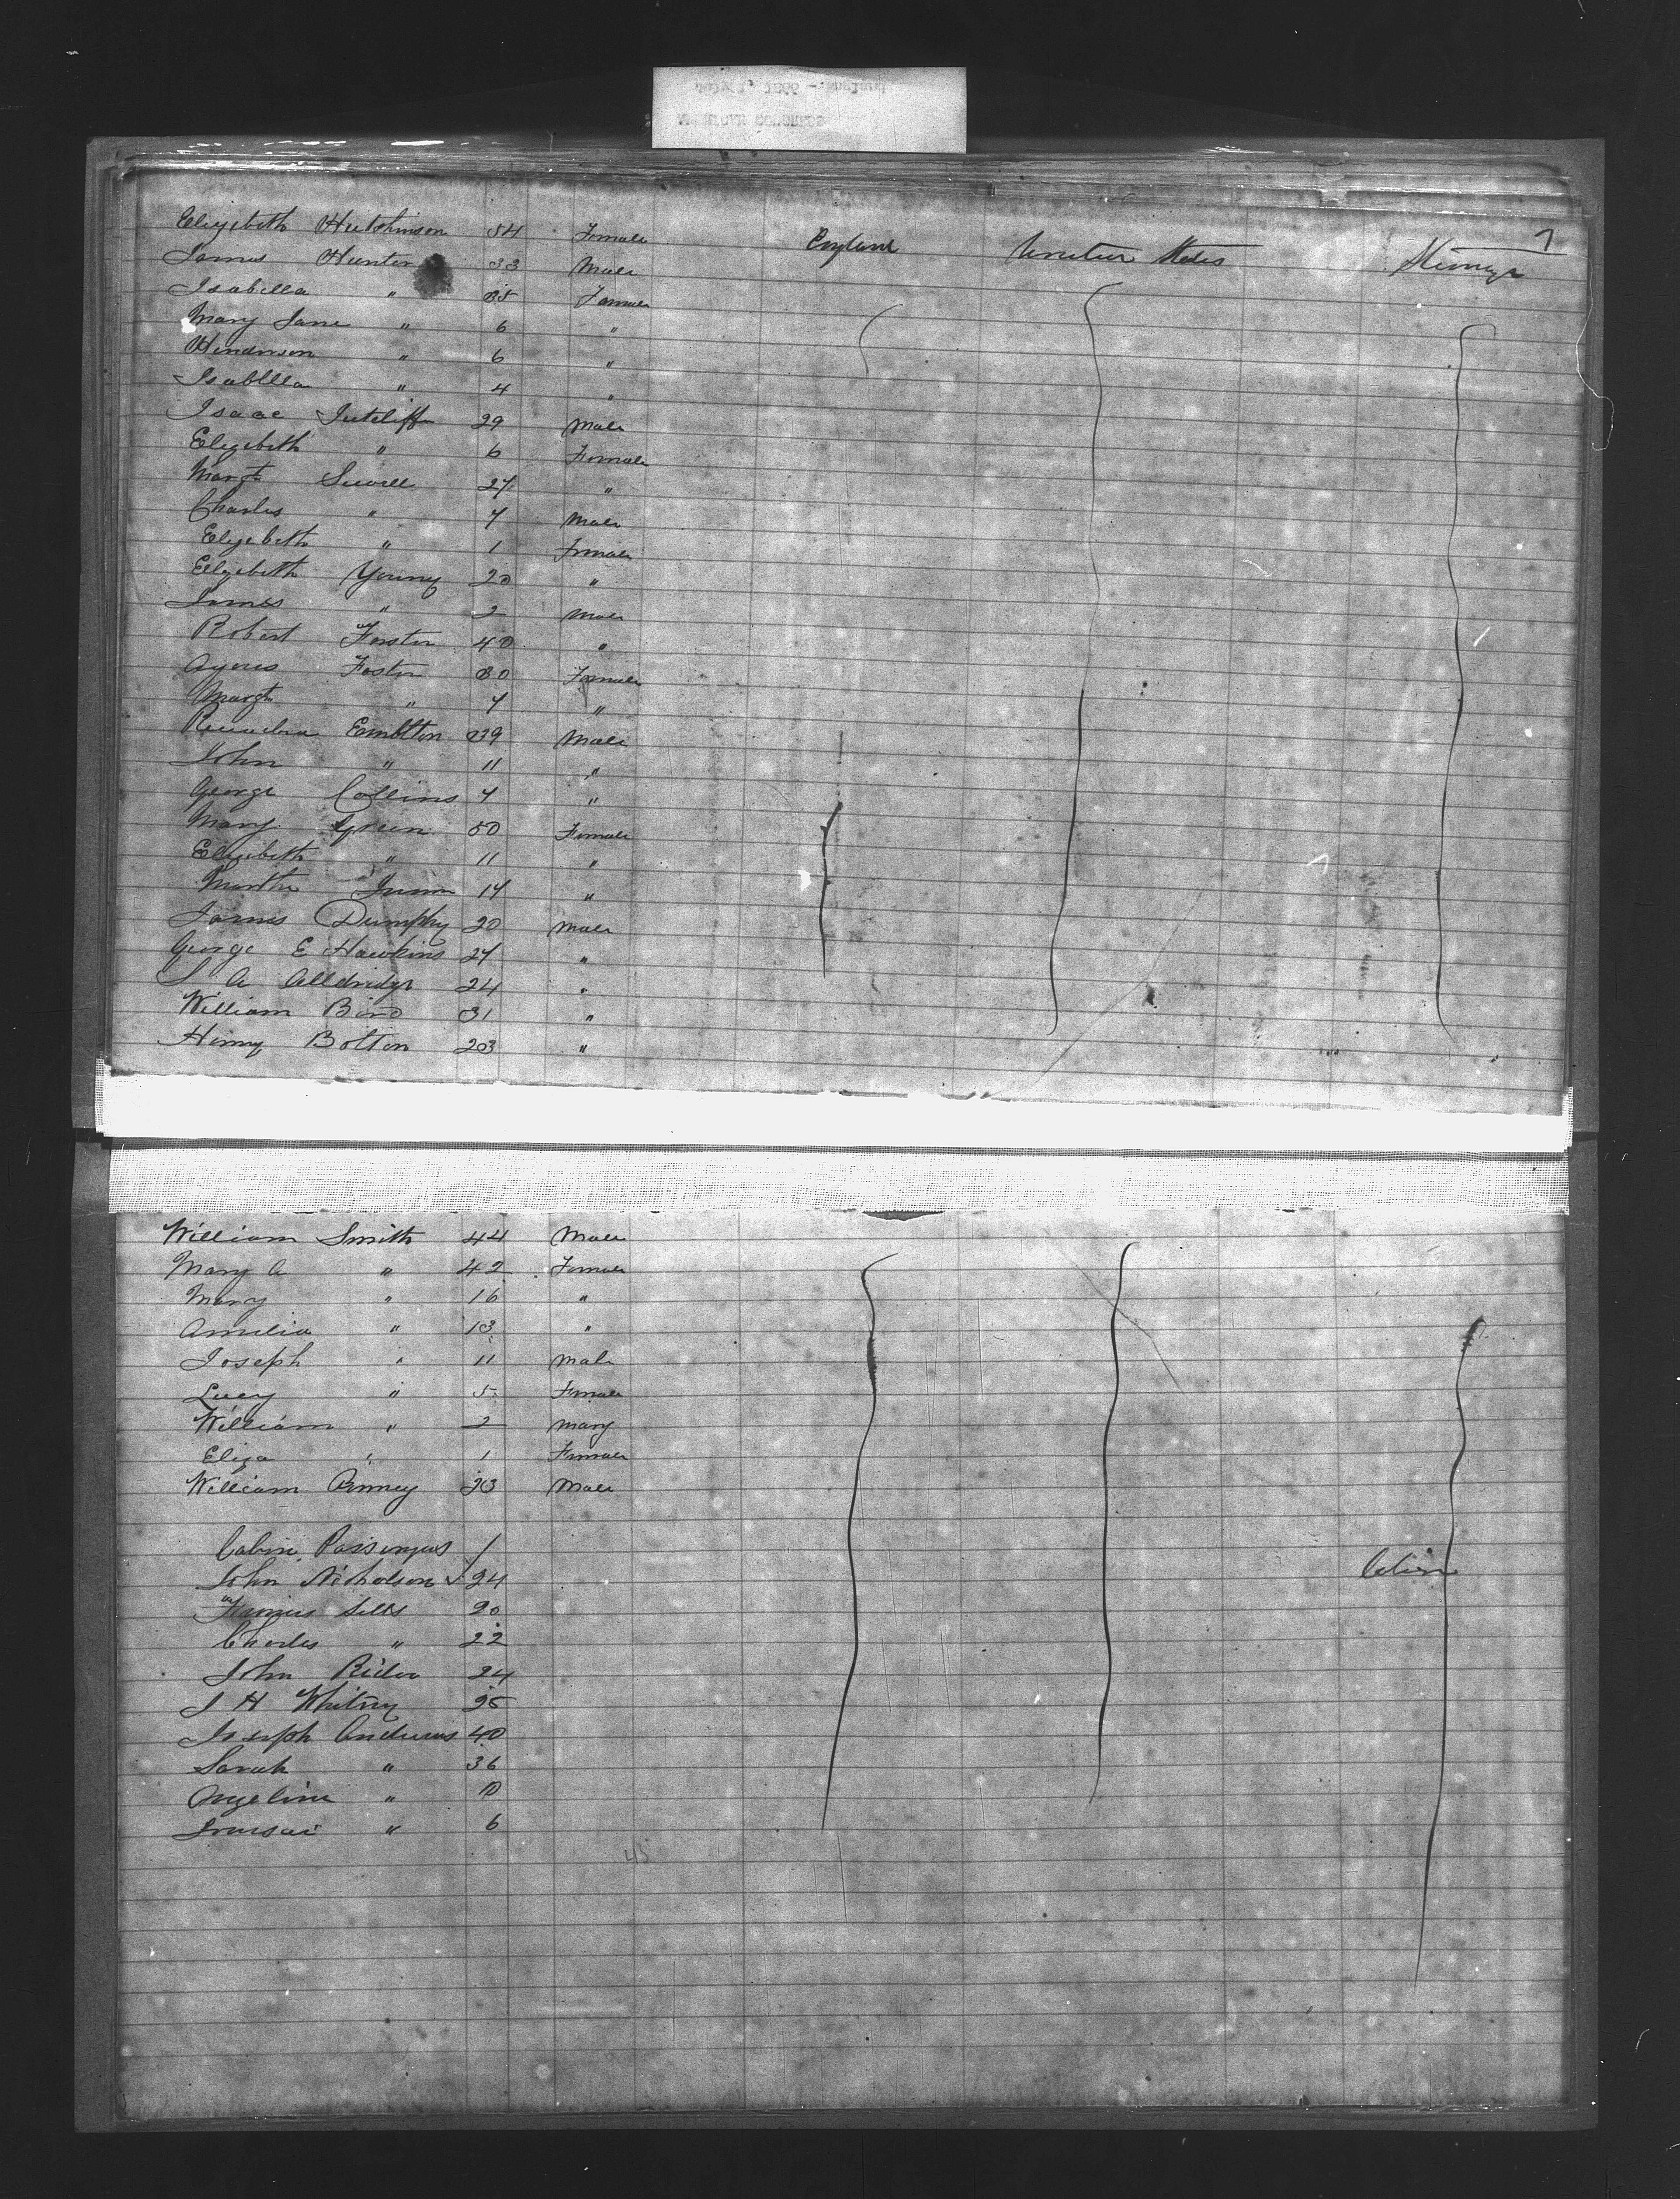 7
Elizebeth Hutchinson 54 Female England United States Steerage
James Hunter 33 Male
Isabella " 35 Female
Mary Jane " 6 "
Henderson " 6 "
Isabella " 4 "
Isaac Sutcliff 29 Male
Elizebeth " 6 Female
Margt Sewell 27 "
Charles " 7 Male
Elizebeth " 1 Female
Elizebeth Young 20 "
James " 2 Male
Robert Forster 40 "
Agnes Foster 30 Female
Margt " 7 "
Embleton 39 Male
John " 11 "
George Collins 7 "
Mary Green 50 Female
Elizebeth " 11 "
Martha 17 "
James Dumphy 20 Male
George E Hawkins 27 "
J A Alldridge 24 "
William Bird 31 "
Henry Bolton 23 "
William Smith 44 Male
Mary A " 42 Female
Mary " 16 "
Amelia " 13 "
Joseph " 11 Male
Lucy " 5 Female
William " 2 Mary
Eliza " 1 Female
William Penney 23 Male
Cabin Passengers
John Nicholson 24 Cabin
Francis Sills 20
Charles " 22
John Rider 24
J H Whitney 25
Joseph Andrews 40
Sarah " 36
Angeline " 10
" 6
45